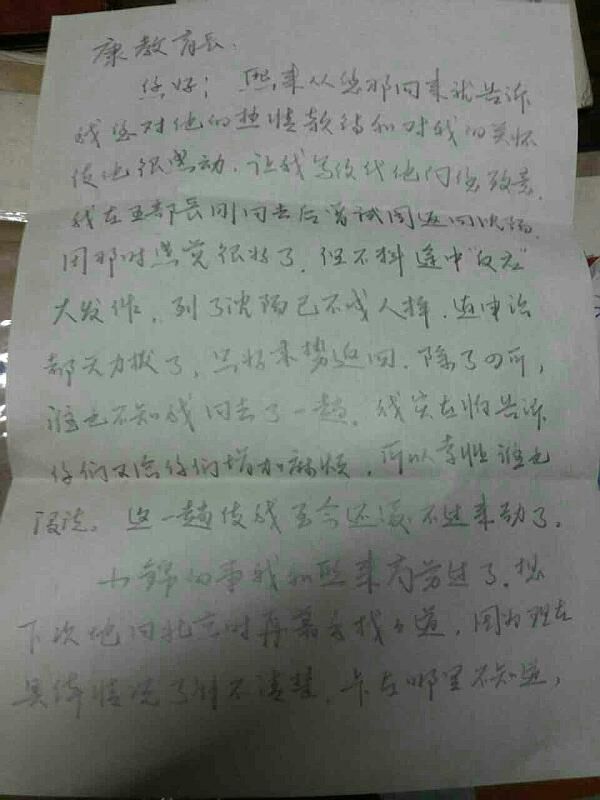 康教育长:
您好! 熙来从您那回来就告诉
我您对他的热情款待和对我的关怀
使他很感动.让我写信代他向您致意.
我在王部长刚回去后曾试图返回沈阳.
因那时感觉很好了.但不料途中"反应"
大发作,到了沈阳已不成人样.连申诉
都无力
了,只好来
返回.除了四所,
谁也不知我回去了一趟.我实在怕告诉
你们又给你们增加麻烦,所以索性谁也
没说.这一趟使我至今还缓不过来劲了.
小
的事我和熙来商
过了.想
下次他回北京时再
找之道,因为现在
具体情况了解不清楚,卡在哪里不知道,